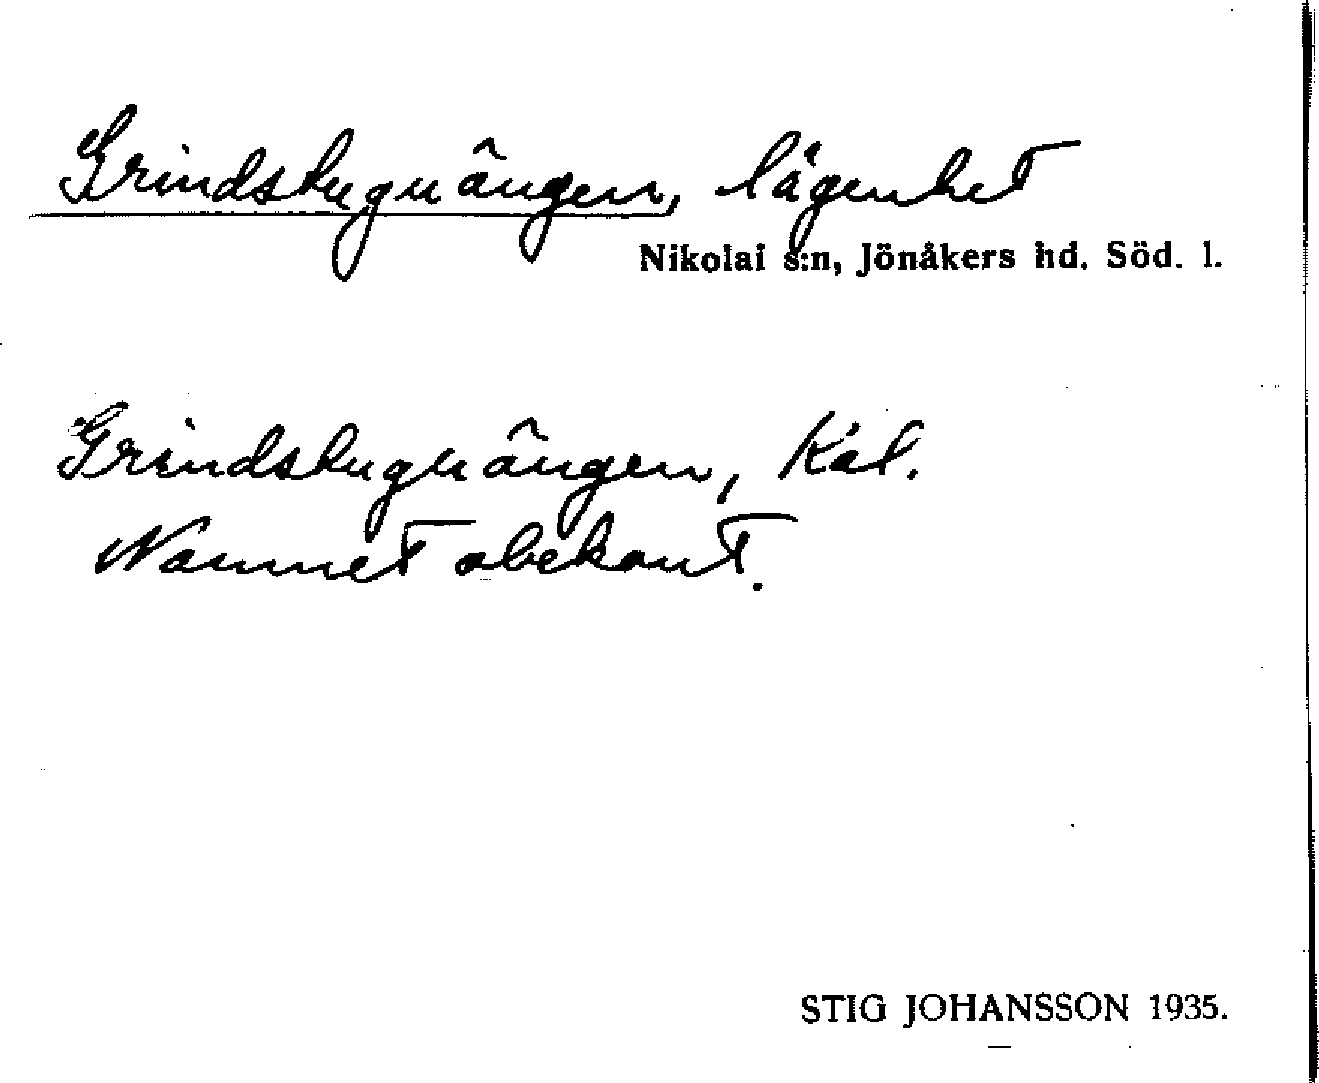 Grindstuguängen, lägenhet
Nikolai s:n, Jönåkers hd. Söd. l.
Grindstuguängen, Kal.
Namnet obekant.
STIG JOHANSSON 1935.